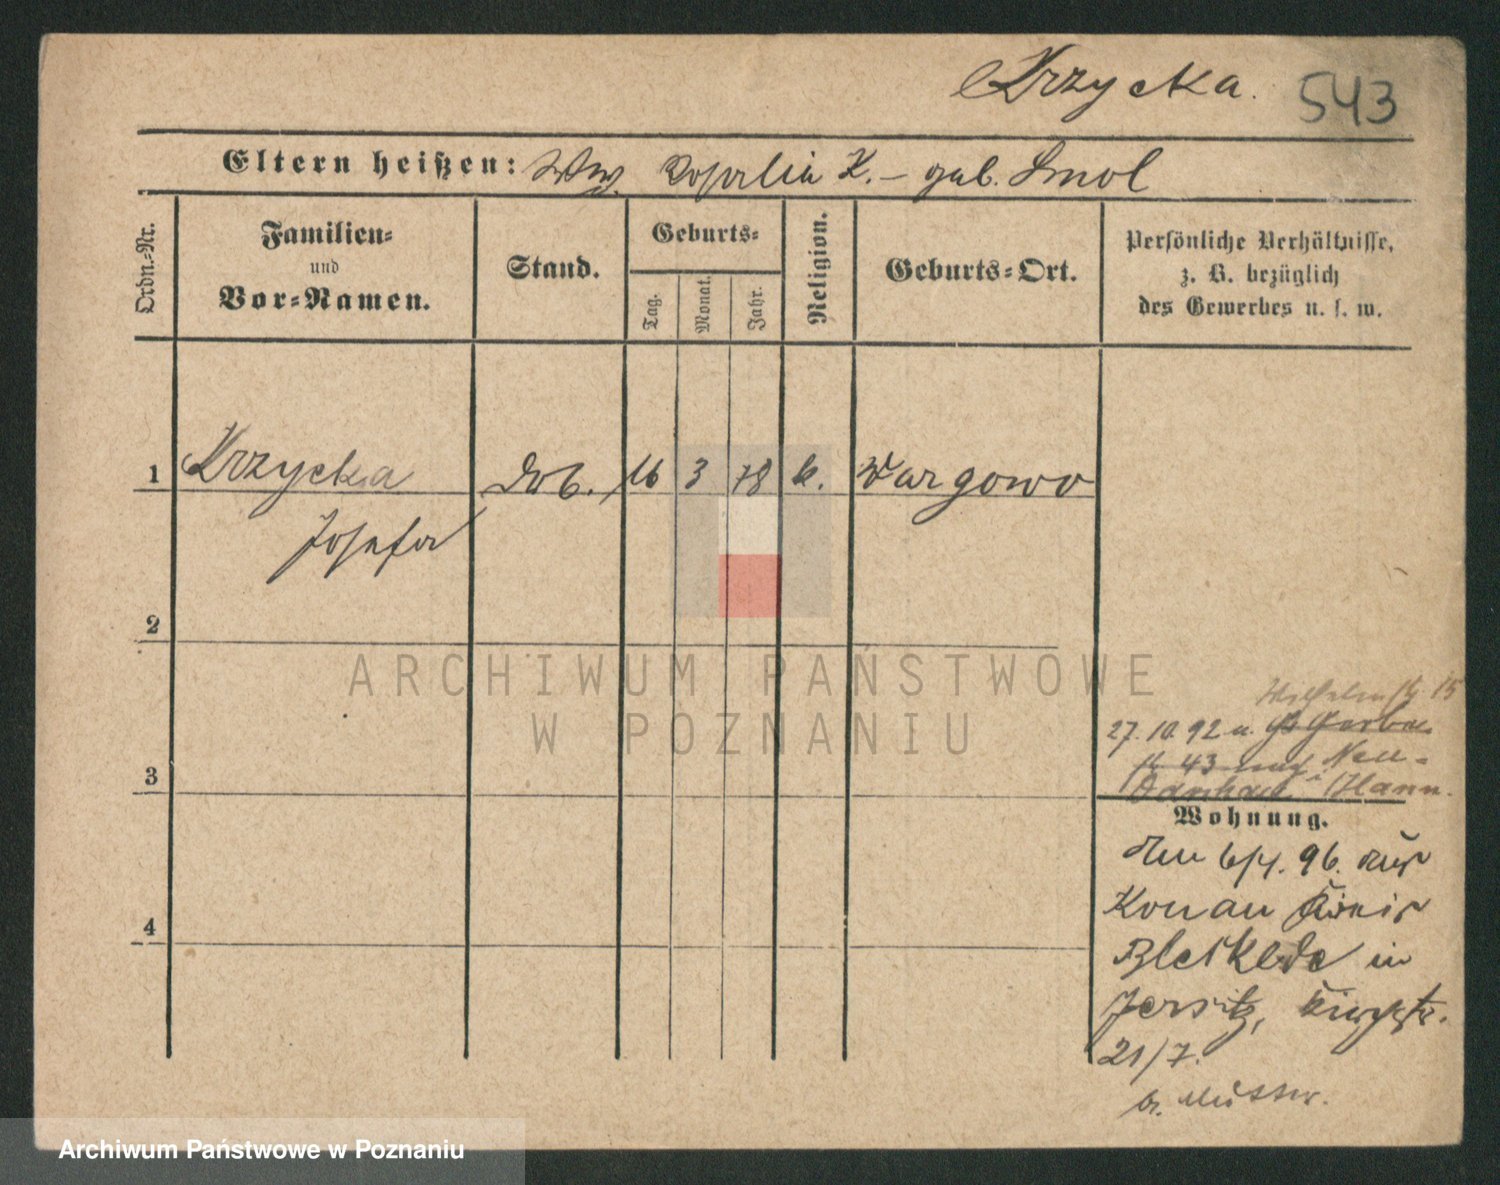 Krzycka. 543
Eltern heißen: Ww. Rosalia K. – geb. Smol
Ordn.-Nr.
Familien-
und
Vor-Namen.
Stand.
Geburts-
Tag.
Monat.
Jahr.
Religion.
Geburts-Ort.
Persönliche Verhältnisse,
z. B. bezüglich
des Gewerbes u. s. w.
1 Krzycka Arb. 16 3 78 k. Wargowo
Josefa
2
ARCHIWUM PAŃSTWOWE
W POZNANIU
3
4
Wilhelmstr 15
27.10.92 n. Gr Gerber
str 43 Neu-
i Hann.
Wohnung.
Den 6/4. 96. aus
Konau Kreis
Bleckede in
Jersitz, Kirchstr.
21/7.
b. Mutter.
Archiwum Państwowe w Poznaniu